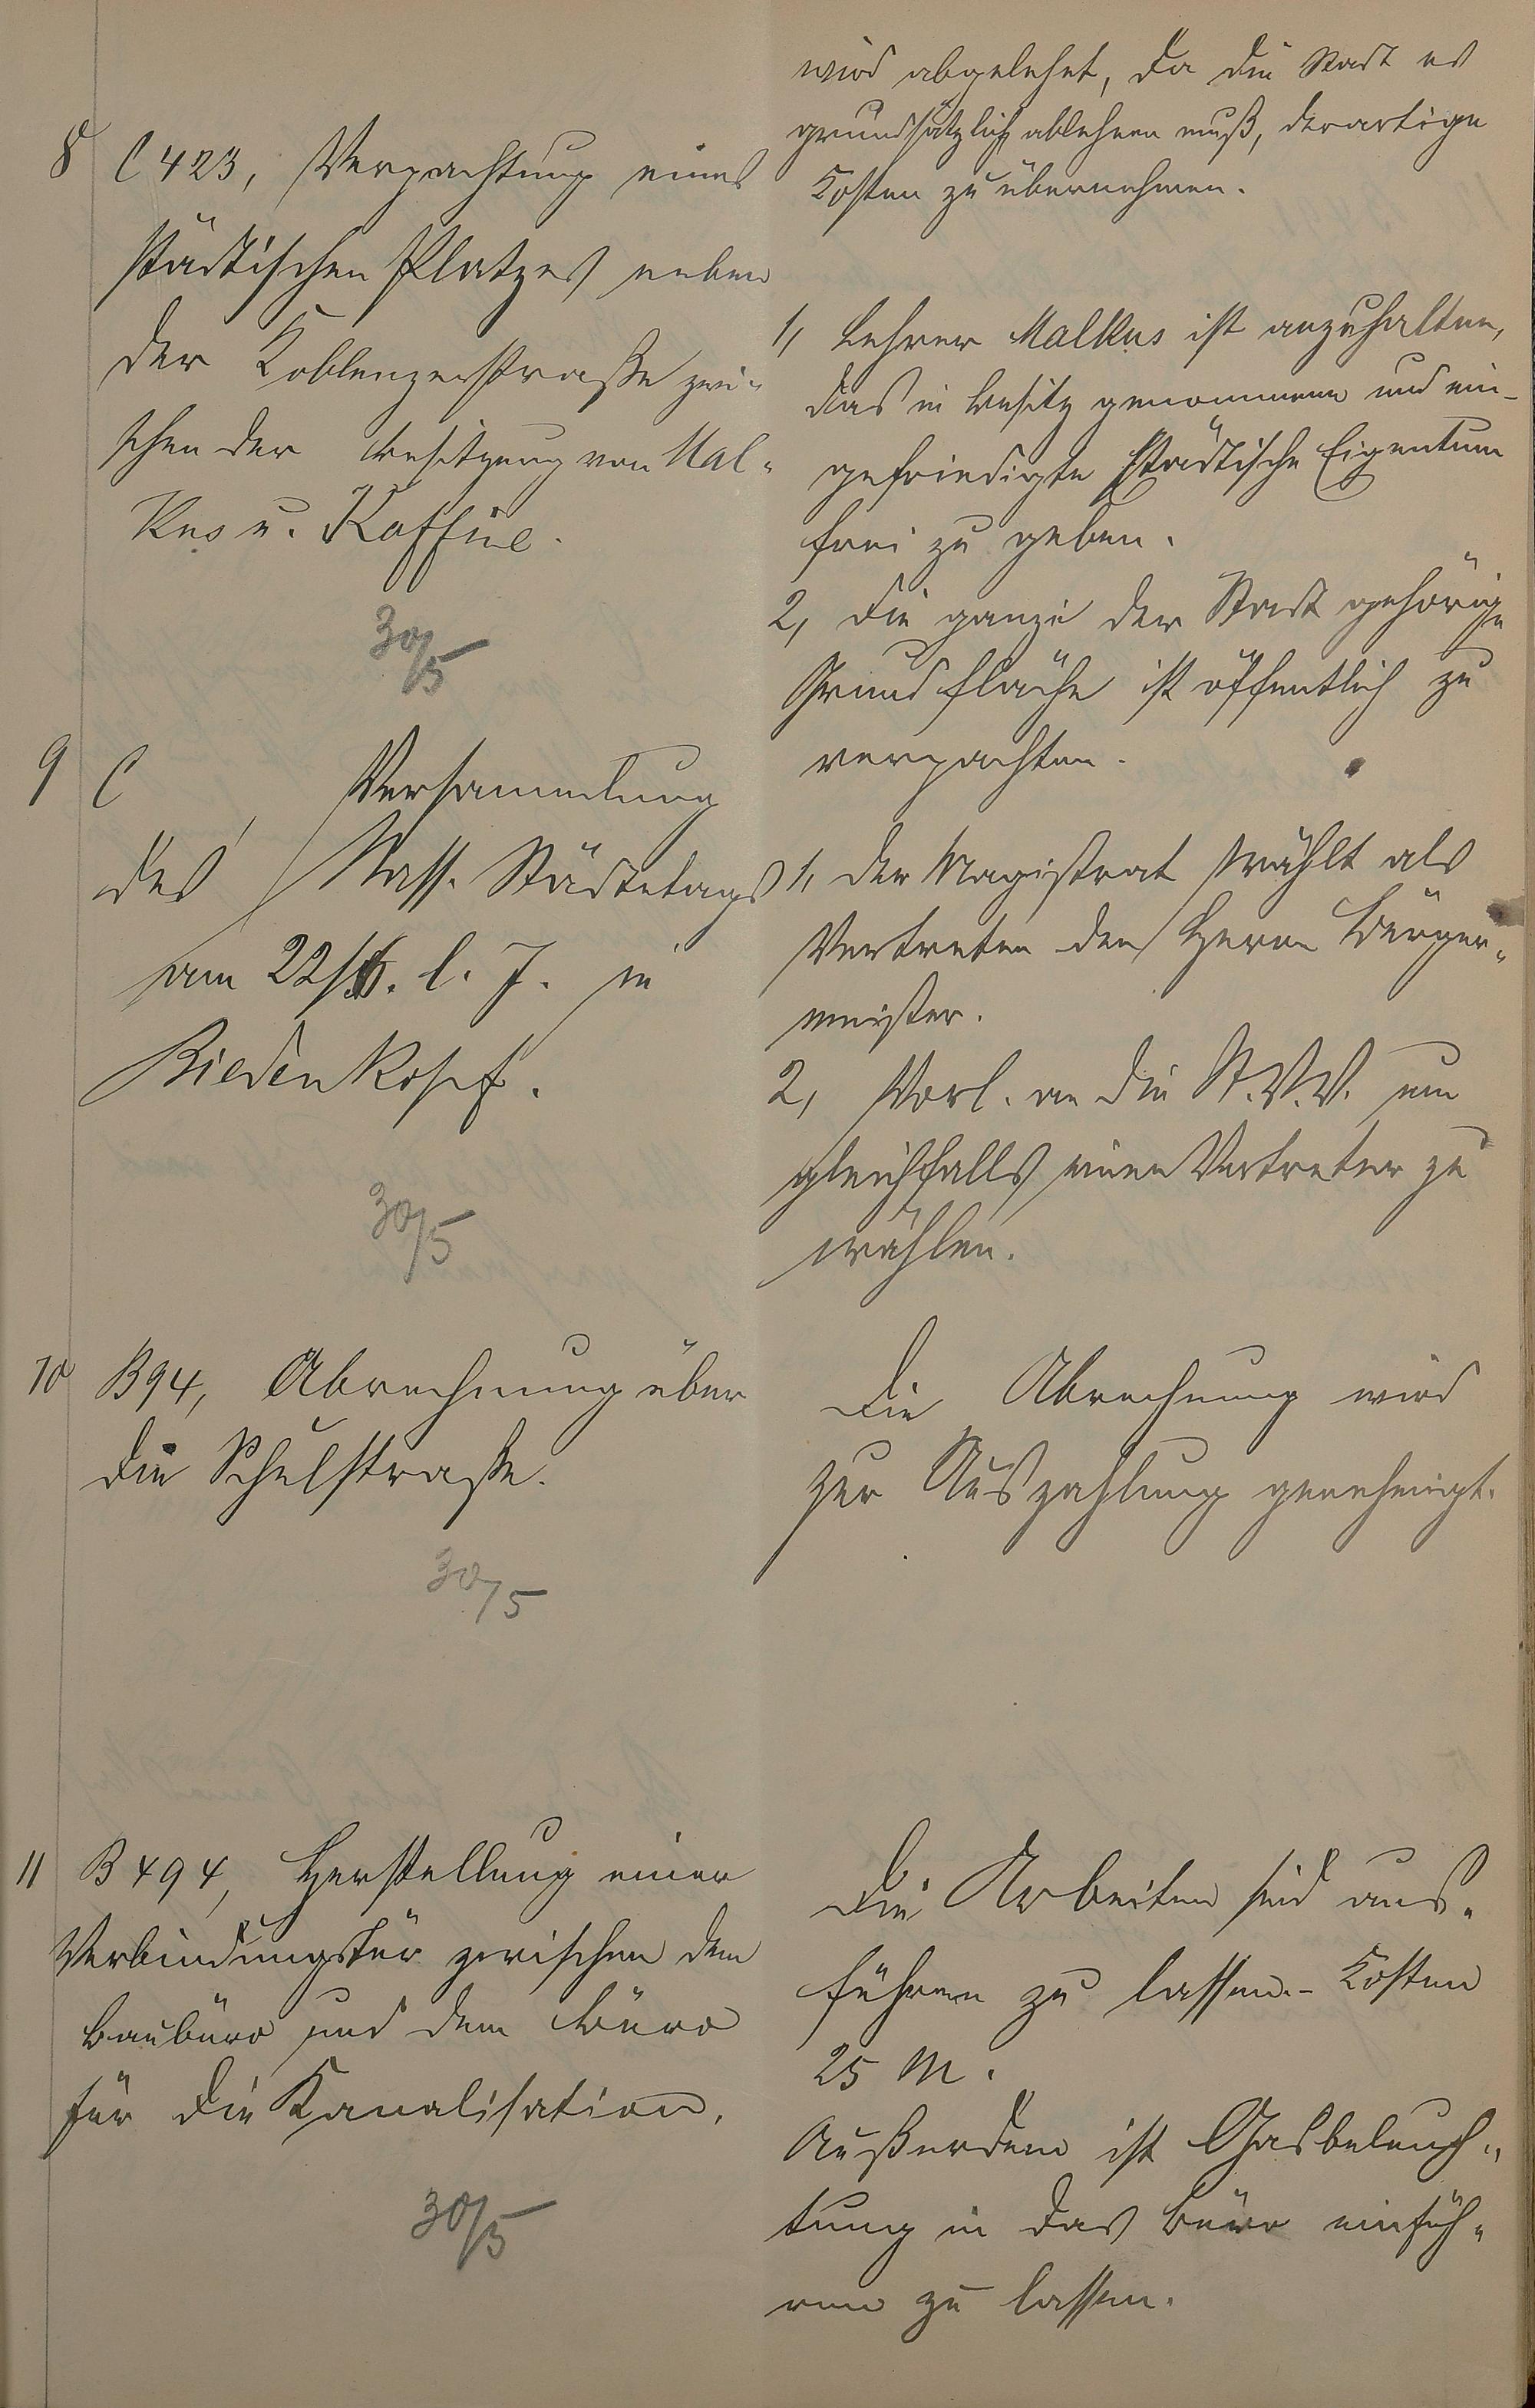 wird abgelehnt, da die Stadt es
grundsätzlich ablehnen muß, derartige
Kosten zu übernehmen.
8 C 423, Verpachtung eines
städtischen Platzes neben
der Koblenzerstraße zwi-
schen der Besitzung von Mal-
kus u.
30/5
1, Lehrer Malkus ist anzuhalten,
das in Besitz genommene und ein-
gefriedigte städtische Eigentum
frei zu geben.
2, Die ganze der Stadt gehörige
Grundfläche ist öffentlich zu
verpachten.
9 C , Versammlung
des Nass. Städtetags
am 22/6. l. J. in
Biedenkopf.
30/5
1, Der Magistrat wählt als
Vertreter den Herrn Bürger-
meister.
2, Vorl. an die St.V.V. um
gleichfalls einen Vertreter zu
wählen.
10 B 94, Abrechnung über
die Schulstraße.
30/5
Die Abrechnung wird
zur Auszahlung genehmigt.
11 B 494, Herstellung einer
Verbindungstür zwischen dem
Baubüro und dem Büro
für die Kanalisation.
30/5
Die Arbeiten sind aus-
führen zu lassen. - Kosten
25 M.
Außerdem ist Gasbeleuch-
tung in das Büro einfüh-
ren zu lassen.